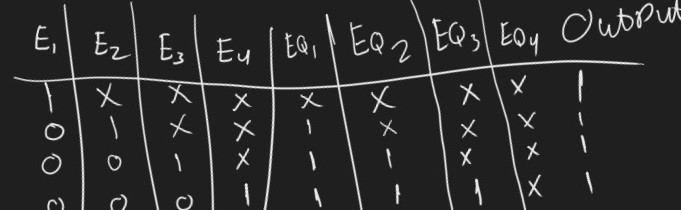 E₁ E₂ E₃ E₄ EQ₁ EQ₂ EQ₃ EQ₄ Output
1 X X X X X X X 1
0 1 X X 1 X X X 1
0 0 1 X 1 1 X X 1
0 0 0 1 1 1 1 X 1